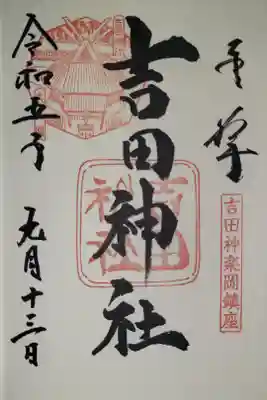 奉拝
吉田神楽岡鎮座
吉田神社
吉田神社
令和五年 九月十三日